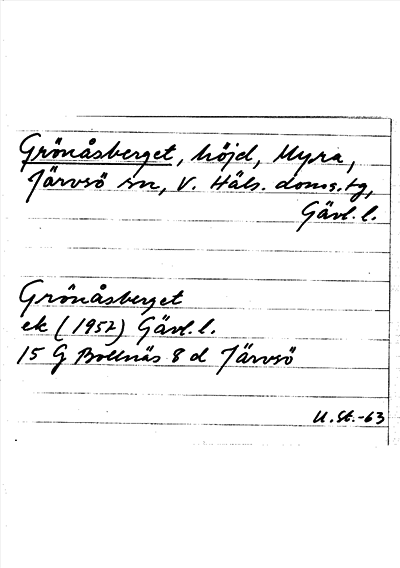 Grönåsberget, höjd, Myra,
Järvsö sn, V. Häls. doms.tg,
Gävl. l.
Grönåsberget
ek (1952) Gävl. l.
15 G Bollnäs 8 d Järvsö
U.St.-63